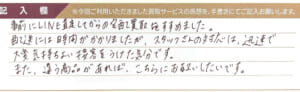 記入欄 ※今回ご利用いただきました買取サービスの感想を、手書きにてご記入お願いします。
事前にLINE査定してからの宅配買取をすすめました。
返送には時間がかかりましたが、スタッフさんの対応は、迅速で
大変気持ちよい接客をうけた気分です。
また、違う商品があれば、こちらにお願いしたいです。